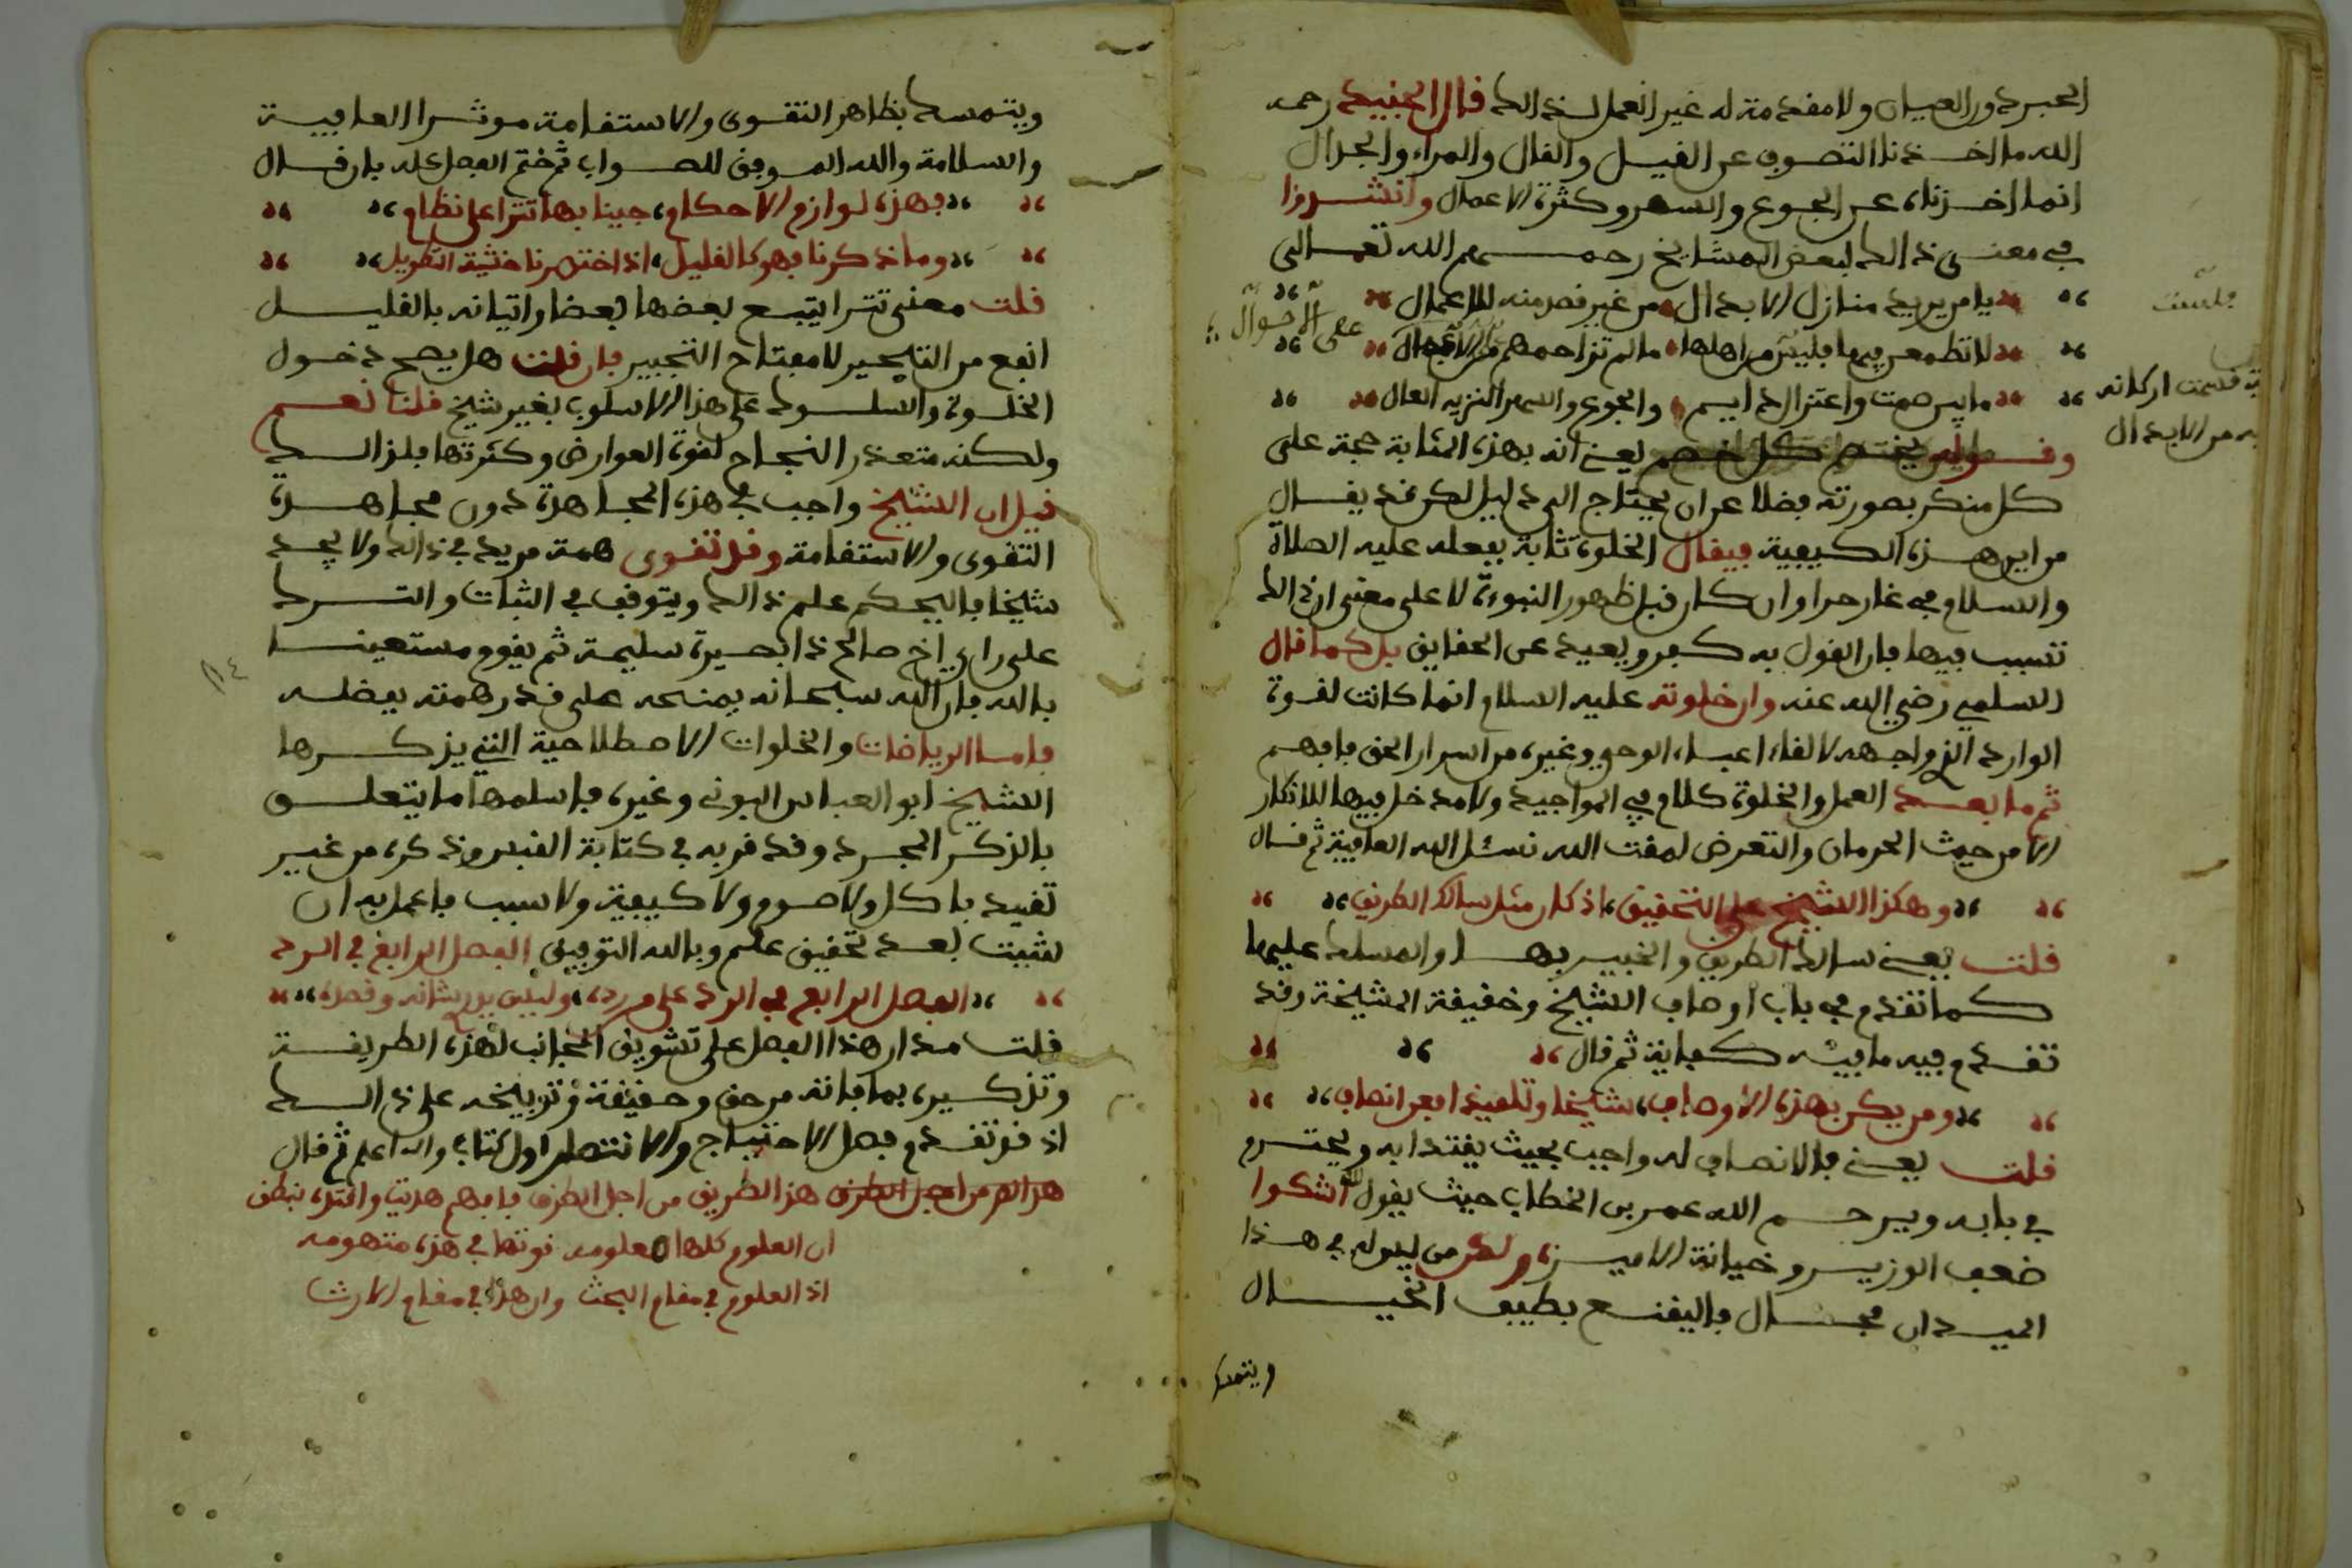 المجرد ورا العيان ولا مقدمة له غير العمل لذالك قال الجنيد رحمه
الله ما اخذنا التصوف عن القيل والقال والمراء والجدال
انما اخذناه عن الجوع والسهر وكثرة الاعمال وانشدوا
في معنى ذالك لبعض المشايخ رحمهم الله تعالى
يا من يريد منازل الابدال من غير قصد منه للاعمال
لا تطمعن فيها فليس من اهلها ما لم تزاحمهم على الاحوال
ما بين صمت واعتزال دايم والجوع والسهر النزيه العال
فلست
بيت قسمت اركانه
فيه من الابدال
وقوله يخصم كل خصم يعني انه بهذه المثابة حجة على
كل منكر بصورته فضلا عن ان يحتاج الى دليل لكن قد يقال
من اين هذه الكيفية فيقال الخلوة ثابتة بفعله عليه الصلاة
والسلام في غار حرا وان كان قبل ظهور النبوءة لا على معنى ان ذالك
تسبب فيها فان القول به كفر وبعيد عن الحقايق بل كما قال
السلمي رضي الله عنه وان خلوته عليه السلام انما كانت لقوة
الوارد الذي واجهه لالقاء اعباء الوحي وغيره من اسرار الحق فافهم
ثم ما بعد العمل والخلوة كلام في المواجيد ولا مدخل فيها للانكار
الا من حيث الحرمان والتعرض لمقت الله نسئل الله العافية ثم قال
وهكذا الشيخ على التحقيق اذ كان مثل سالك الطريق
قلت يعني سالك الطريق والخبير بها والمسلك عليها
كما تقدم في باب اوصاف الشيخ وحقيقة المشيخة وقد
تقدم فيه ما فيه كفاية ثم قال
ومن يكن بهذه الاوصاف شيخا وتلميذا فعن انصاف
قلت يعني فالانصاف له واجب بحيث يقتدا به ويحترم
في بابه ويرحم الله عمر بن الخطاب حيث يقول الله اشكوا
ضعف الوزير وخيانة الامين ولكن من ليس له في هذا
الميدان مجال فاليقنع بطيف الخيال
ويتمسك
ويتمسك بظاهر التقوى والاستقامة موثرا العافية
والسلامة والله الموفق للصواب ثم ختم الفصل كله بان قال
فهذه لوازم الاحكام جينا بها تترا على نظام
وما ذكرنا فهو كالقليل اذ اختصرنا خشية التطويل
قلت معنى تترا يتبع بعضها بعضا واتيانه بالقليل
انفع من التكثير لا مفتاح التجبير فان قلت هل يصح دخول
الخلوة والسلوك على هذا الاسلوب بغير شيخ قلنا نعم
ولكنه متعذر النجاح لقوة العوارض وكثرتها فلذالك
قيل ان الشيخ واجب في هذه المجاهدة دون مجاهدة
التقوى والاستقامة وقد تقوى همة مريد في ذالك ولا يجد
شيخا فاليحكم علم ذالك ويتوقف في الثبات والترك
على راي اخ صالح ذا بصيرة سليمة ثم يقوم مستعينا
بالله فان الله سبحانه يمنحه على قدر همته بفضله
فاما الرياضات والخلوات الاصطلاحية التي يذكرها
الشيخ ابو العباس البوني وغيره فاسلمها ما يتعلق
بالذكر المجرد وقد قربه في كتابة القبس وذكره من غير
تقييد باكل ولا صوم ولا كيفية ولا سبب فاعمل به ان
شئت بعد تحقيق علم وبالله التوفيق الفصل الرابع في الرد
الفصل الرابع في الرد على من رده وليس يدري شانه وقصده
قلت مدار هذا الفصل على تشويق المجانب لهذه الطريقة
وتذكيره بما فاته من حق وحقيقة وتوبيخه على ذالك
اذ قد تقدم فصل الاحتجاج والانتصار اول كتاب والله اعلم ثم قال
هذا الطريق من اجل الطرق فافهم هديت واقتده بنطق
ان العلوم كلها معلومه فوتها في هذه متهومه
اذ العلوم في مقام البحث وان هذا في مقام الارث